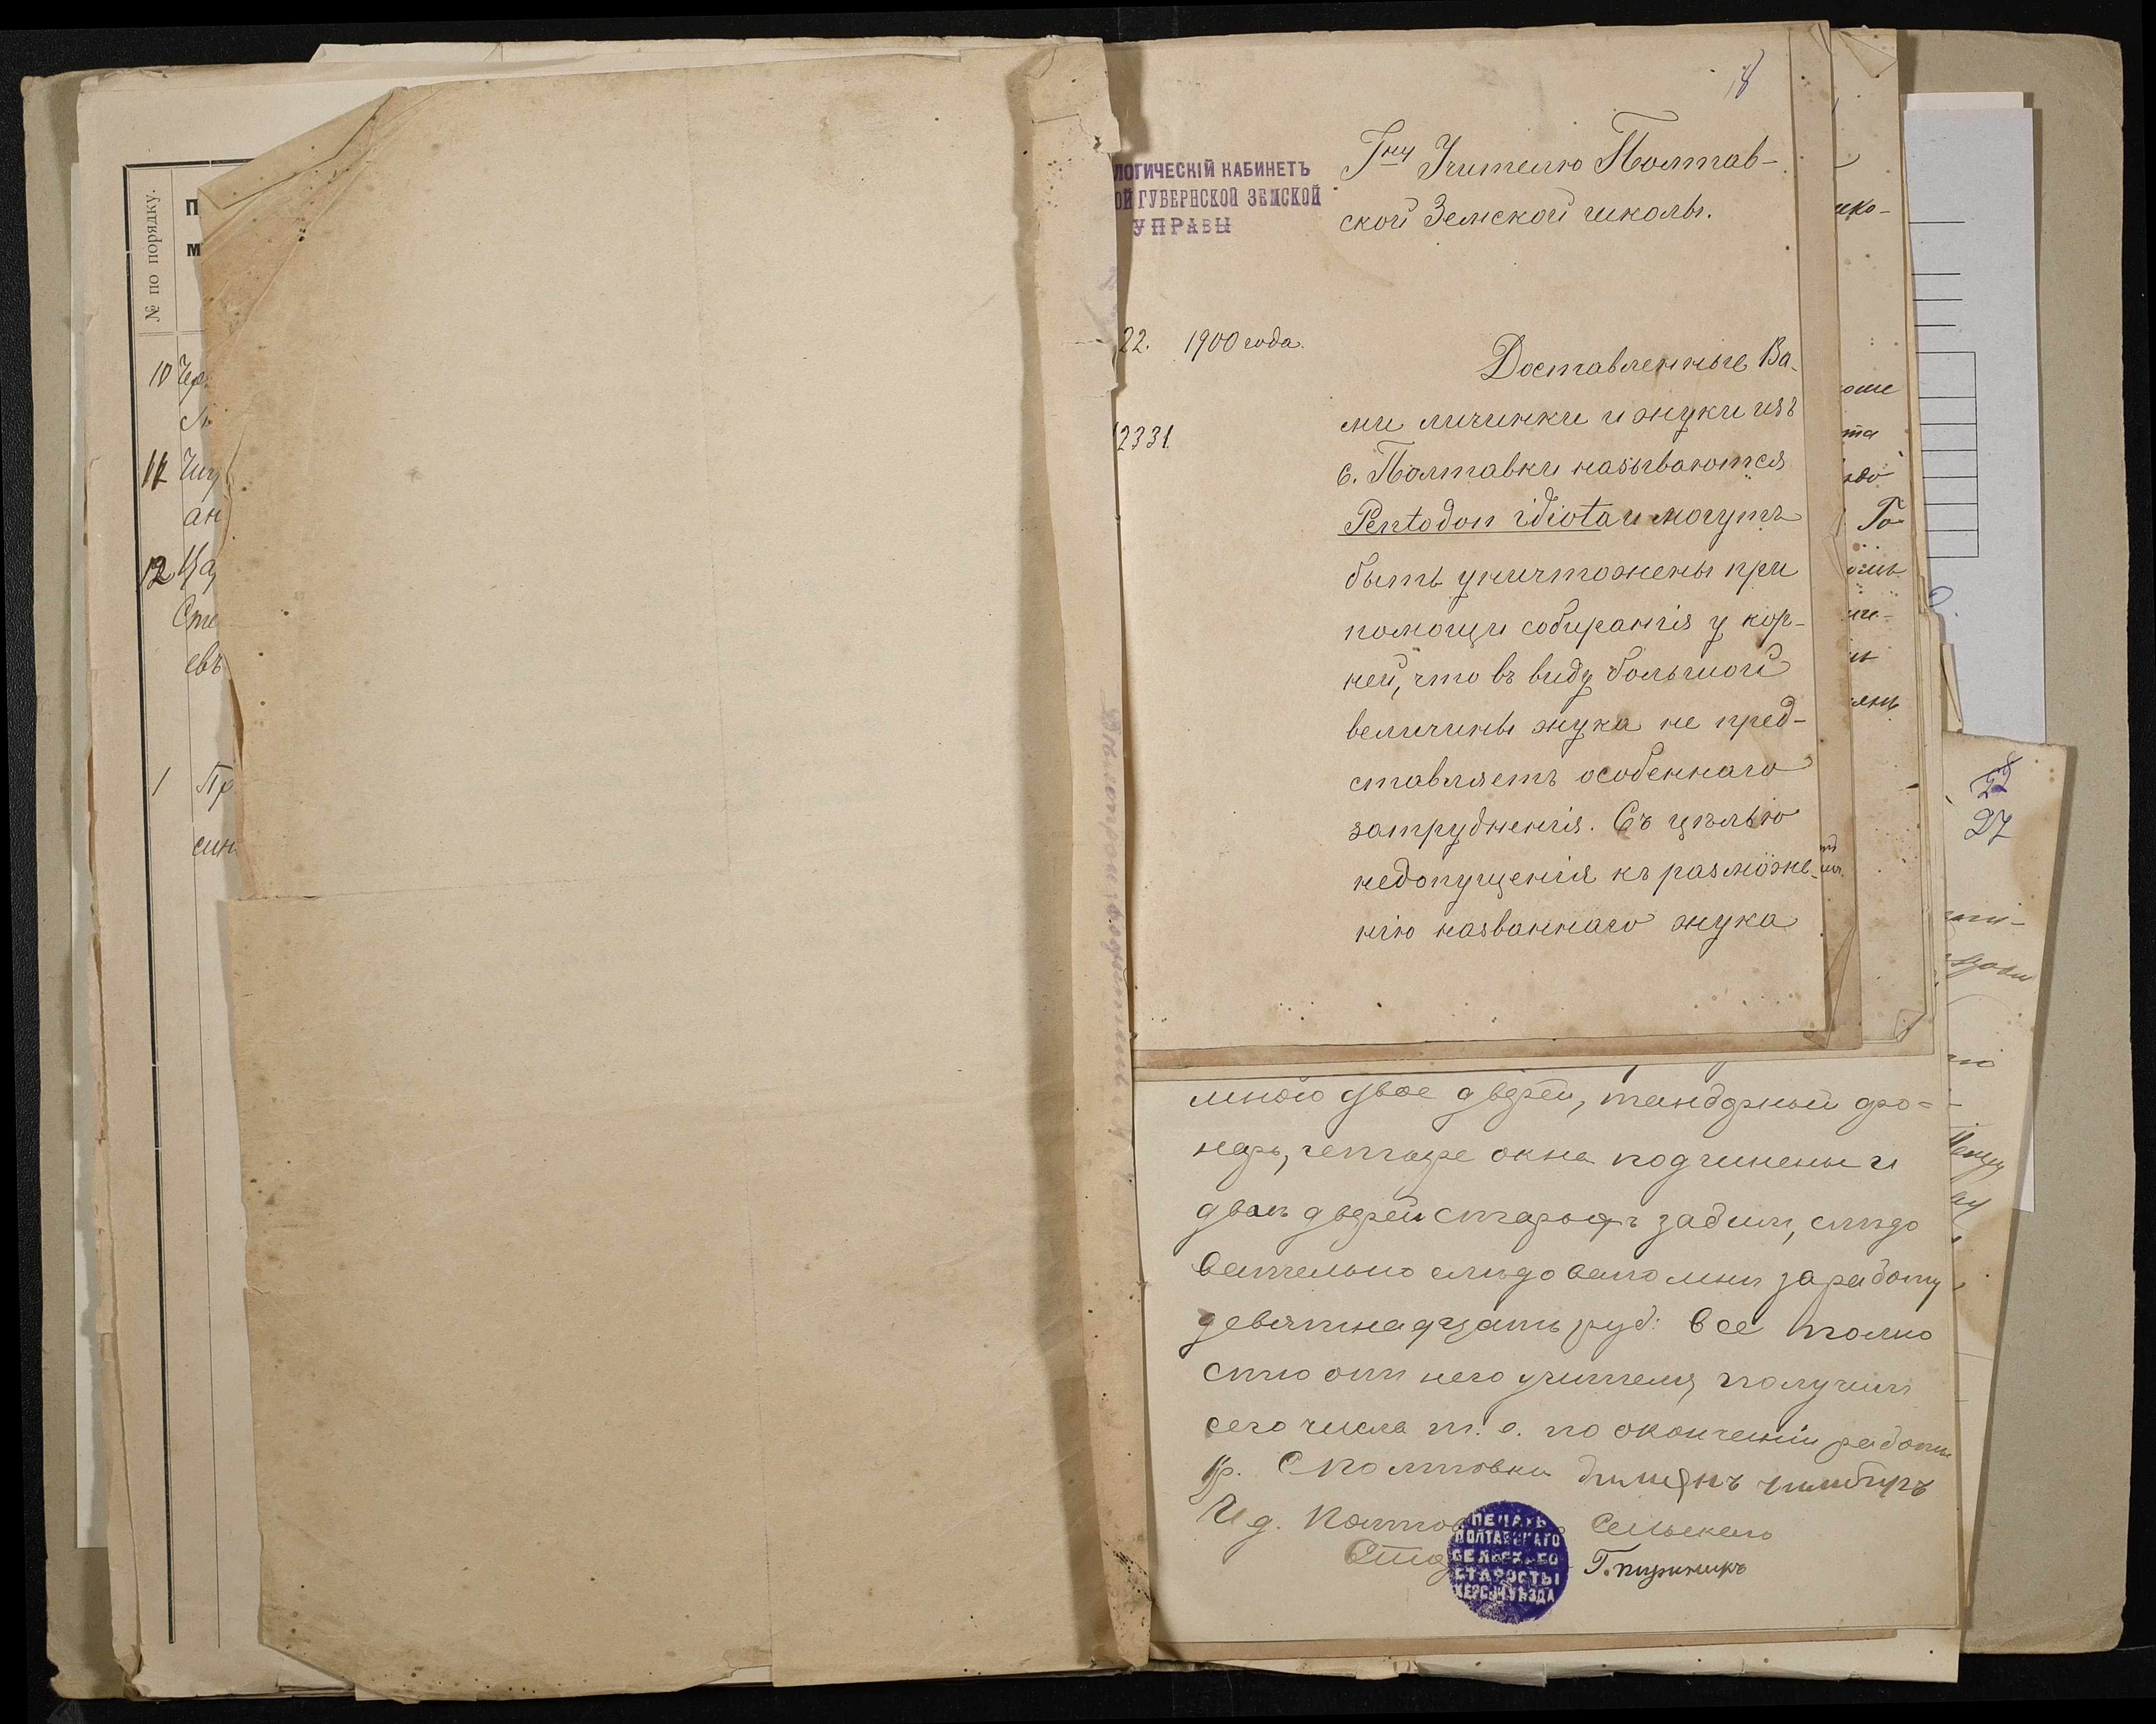 № по порядку.
П
М
10 Чер
11 Чиу
ан
12 Ца
Сте
евъ
1 Пр
син
18
ЛОГИЧЕСКІЙ КАБИНЕТЪ
ОЙ ГУБЕРНСКОЙ ЗЕМСКОЙ
УПРАВЫ
Гну Учителю Полтав-
ской Земской школы.
22. 1900 года.
12331.
Доставленные Ва-
ми личинки и жуки изъ
с. Полтавки называются
Pentodon idiota и могутъ
быть уничтожены при
помощи собиранія у кор-
ней, что въ виду большой
величины жука не пред-
ставляетъ особеннаго
затрудненія. Съ цѣлью
недопущенія къ размноже-
нію названнаго жука
мною двое дверей, фо=
нарь, четыре окна подчинены и
двѣ дверей старыхъ задѣли, слѣдо
вательно слѣдовало мнѣ за работу
девятнадцать руб: все полно
стю отъ него учителя получилъ
сего числа т. е. по окончаніи работы
кр. С Полтовки
И д. Полтов Сельскаго
Ста
ПЕЧАТЬ
ПОЛТАВСКАГО
СЕЛЬСКАГО
СТАРОСТЫ
ХЕРС. УѢЗДА
ико-
оте
та
Го
27